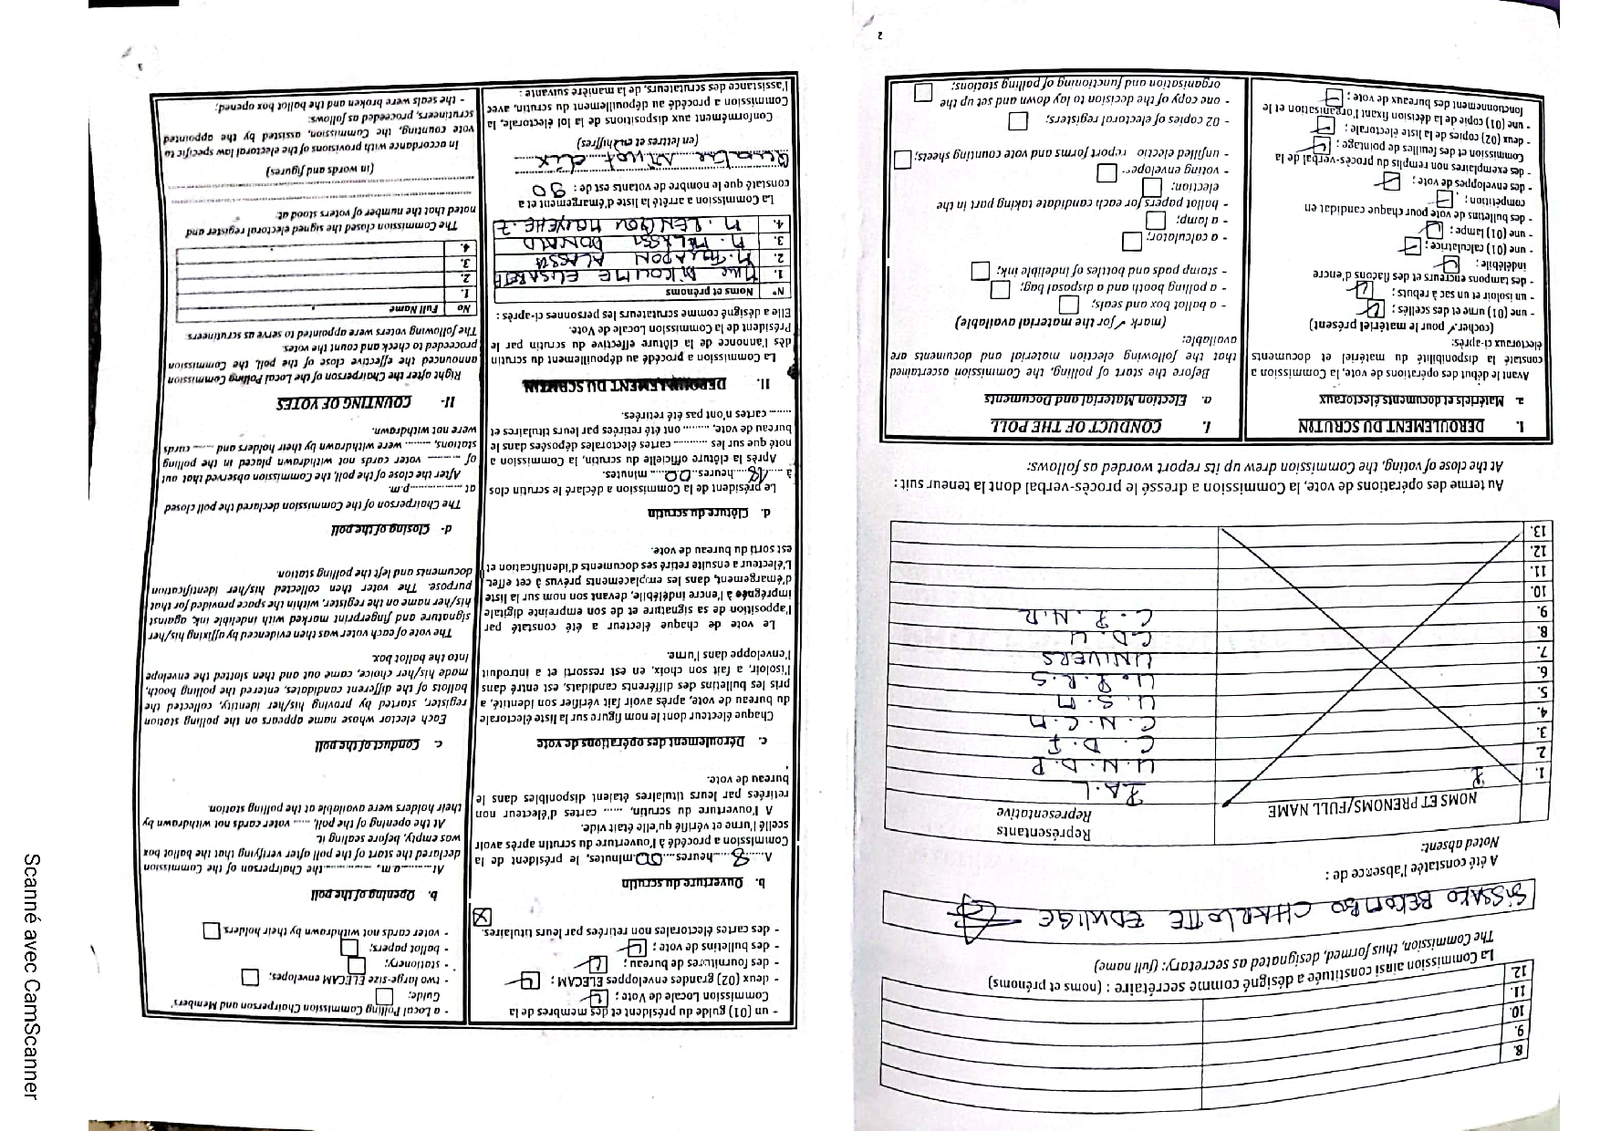 8.
9.
10.
11.
12.
La Commission ainsi constituée a désigné comme secrétaire : (noms et prénoms)
The Commission, thus formed, designated as secretary: (full name)
SISSAKO BEKOMBO CHARLOTTE EDWIGE
A été constatée l'absence de :
Noted absent:
NOMS ET PRENOMS/FULL NAME
Représentants
Representative
1.
P.A.L
2.
U.N.D.P
3.
C.D.F
4.
C.N.C.M
5.
U.S.M
6.
U.P.R.S
7.
UNIVERS
8.
C.D.U
9.
C.P.N.R
10.
11.
12.
13.
Au terme des opérations de vote, la Commission a dressé le procès-verbal dont la teneur suit :
At the close of voting, the Commission drew up its report worded as follows:
I. DEROULEMENT DU SCRUTIN
a. Matériels et documents électoraux
Avant le début des opérations de vote, la Commission a
constaté la disponibilité du matériel et documents
électoraux ci-après:
(cocher ✓ pour le matériel présent)
- une (01) urne et des scellés ;
- un isoloir et un sac à rebuts ;
- des tampons encreurs et des flacons d'encre
indélébile;
- une (01) calculatrice ;
- une (01) lampe ;
- des bulletins de vote pour chaque candidat en
compétition ;
- des enveloppes de vote ;
- des exemplaires non remplis du procès-verbal de la
Commission et des feuilles de pointage ;
- deux (02) copies de la liste électorale ;
- une (01) copie de la décision fixant l'organisation et le
fonctionnement des bureaux de vote ;
I. CONDUCT OF THE POLL
a. Election Material and Documents
Before the start of polling, the Commission ascertained
that the following election material and documents are
available:
(mark ✓ for the material available)
- a ballot box and seals;
- a polling booth and a disposal bag;
- stamp pads and bottles of indelible ink;
- a calculator;
- a lamp;
- ballot papers for each candidate taking part in the
election;
- voting envelopes;
- unfilled electio report forms and vote counting sheets;
- 02 copies of electoral registers;
- one copy of the decision to lay down and set up the
organisation and functioning of polling stations;
2
- un (01) guide du président et des membres de la
Commission Locale de Vote ;
- deux (02) grandes enveloppes ELECAM ;
- des fournitures de bureau ;
- des bulletins de vote ;
- des cartes électorales non retirées par leurs titulaires.
b. Ouverture du scrutin
A 8 heures 00 minutes, le président de la
Commission a procédé à l'ouverture du scrutin après avoir
scellé l'urne et vérifié qu'elle était vide.
A l'ouverture du scrutin, ...... cartes d'électeur non
retirées par leurs titulaires étaient disponibles dans le
bureau de vote.
c. Déroulement des opérations de vote
Chaque électeur dont le nom figure sur la liste électorale
du bureau de vote, après avoir fait vérifier son identité, a
pris les bulletins des différents candidats, est entré dans
l'isoloir, a fait son choix, en est ressorti et a introduit
l'enveloppe dans l'urne.
Le vote de chaque électeur a été constaté par
l'apposition de sa signature et de son empreinte digitale
imprégnée à l'encre indélébile, devant son nom sur la liste
d'émargement, dans les emplacements prévus à cet effet.
L'électeur a ensuite retiré ses documents d'identification et
est sorti du bureau de vote.
d. Clôture du scrutin
Le président de la Commission a déclaré le scrutin clos
à 18 heures 00 minutes.
Après la clôture officielle du scrutin, la Commission a
noté que sur les .......... cartes électorales déposées dans le
bureau de vote, ........ ont été retirées par leurs titulaires et
...... cartes n'ont pas été retirées.
II. DEPOUILLEMENT DU SCRUTIN
La Commission a procédé au dépouillement du scrutin
dès l'annonce de la clôture effective du scrutin par le
Président de la Commission Locale de Vote.
Elle a désigné comme scrutateurs les personnes ci-après :
N° Noms et prénoms
1. Mme DICOUME ELISABETH
2. M. ALASSA
3. M. MELASSA DONALD
4. M.
La Commission a arrêté la liste d'émargement et a
constaté que le nombre de votants est de : 90
Quatre vingt dix
(en lettres et en chiffres)
Conformément aux dispositions de la loi électorale, la
Commission a procédé au dépouillement du scrutin, avec
l'assistance des scrutateurs, de la manière suivante :
- a Local Polling Commission Chairperson and Members'
Guide;
- two large-size ELECAM envelopes,
- stationery;
- ballot papers;
- voter cards not withdrawn by their holders
b. Opening of the poll
At..........a.m. ................the Chairperson of the Commission
declared the start of the poll after verifying that the ballot box
was empty, before sealing it.
At the opening of the poll, ...... voter cards not withdrawn by
their holders were available at the polling station.
c. Conduct of the poll
Each elector whose name appears on the polling station
register, started by proving his/her identity, collected the
ballots of the different candidates, entered the polling booth,
made his/her choice, came out and then slotted the envelope
into the ballot box.
The vote of each voter was then evidenced by affixing his/her
signature and fingerprint marked with indelible ink, against
his/her name on the register, within the space provided for that
purpose. The voter then collected his/her identification
documents and left the polling station.
d- Closing of the poll
The Chairperson of the Commission declared the poll closed
at ..................p.m.
After the close of the poll, the Commission observed that out
of ......... voter cards not withdrawn placed in the polling
stations, ........ were withdrawn by their holders and ...... cards
were not withdrawn.
II- COUNTING OF VOTES
Right after the Chairperson of the Local Polling Commission
announced the effective close of the poll, the Commission
proceeded to check and count the votes.
The following voters were appointed to serve as scrutineers
No Full Name
1.
2.
3.
4.
The Commission closed the signed electoral register and
noted that the number of voters stood at:
(in words and figures)
In accordance with provisions of the electoral law specific to
vote counting, the Commission, assisted by the appointed
scrutineers, proceeded as follows:
- the seals were broken and the ballot box opened;
3
Scanné avec CamScanner